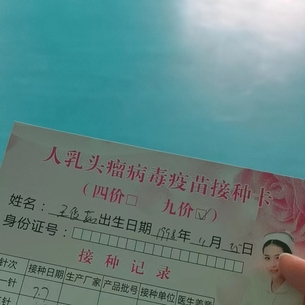 人乳头瘤病毒疫苗接种卡
(四价□ 九价☑)
姓名: 王 出生日期 1998年 11月 25日
身份证号:
接种记录
针次 接种日期 生产厂家 产品批号 接种单位 医生签章
一针
针